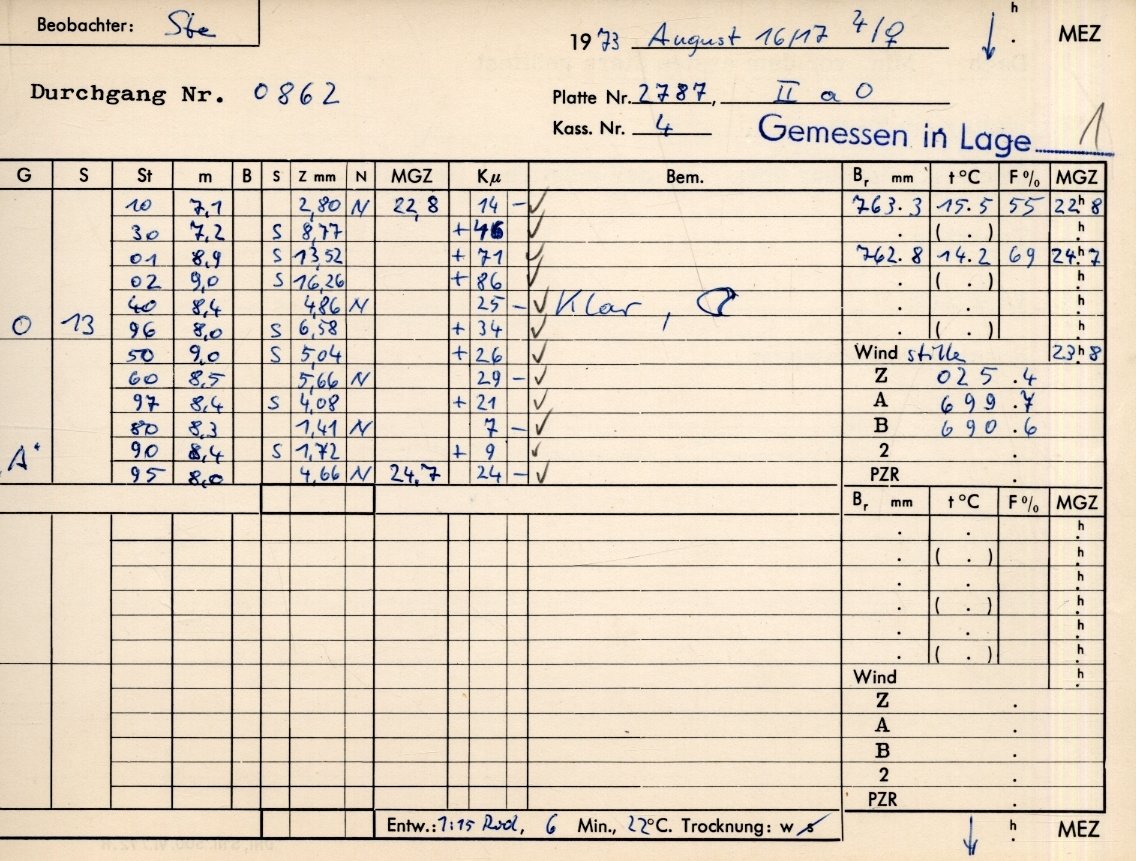 Beobachter: Ste
1973 August 16/17 ♃/♀ h . MEZ
Durchgang Nr. 0862
Platte Nr. 2787, II a O
Kass. Nr. 4
Gemessen in Lage 1
G S St m B S Z mm N MGZ Kμ Bem. Br mm t °C F % MGZ
10 7,1 2,80 N 22,8 14 – ✓ 763.3 15.5 55 22h8
30 7,2 S 8,77 + 46 ✓ . ( . ) h
01 8,9 S 13,52 + 71 ✓ 762.8 14.2 69 24h7
02 9,0 S 16,26 + 86 ✓ . ( . ) h
40 8,4 4,86 N 25 – ✓ Klar, . . h
O 13 96 8,0 S 6,58 + 34 ✓ . ( . ) h
50 9,0 S 5,04 + 26 ✓ Wind stille 23h8
60 8,5 5,66 N 29 – ✓ Z 025.4
97 8,4 S 4,08 + 21 ✓ A 699.7
80 8,3 1,41 N 7 – ✓ B 690.6
A" 90 8,4 S 1,72 + 9 ✓ 2 .
95 8,0 4,66 N 24,7 24 – ✓ PZR
Br mm t °C F % MGZ
. . h
. ( . ) h
. . h
. ( . ) h
. . h
. ( . ) h
Wind h
Z .
A .
B .
2 .
PZR
Entw.: 1:15 Rod, 6 Min., 22°C. Trocknung: w s h . MEZ